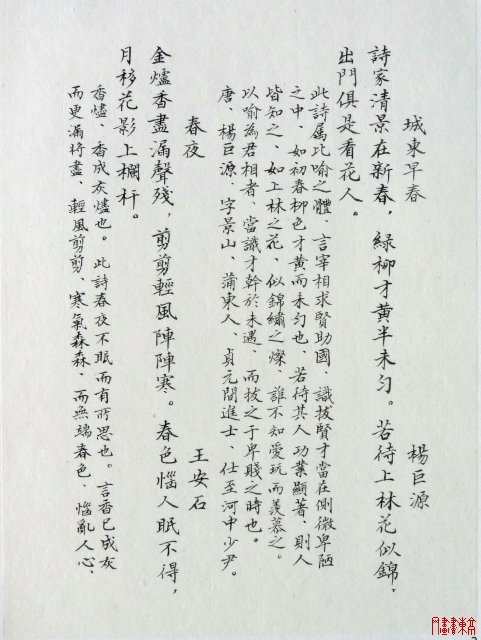 城東早春 楊巨源
詩家清景在新春，綠柳才黃半未勻。若待上林花似錦，
出門俱是看花人。
此詩屬比喻之體、言宰相求賢助國、識拔賢才當在側微卑陋
之中、如初春柳色才黃而未勻也、若待其人功業顯著、則人
皆知之、如上林之花、似錦繡之燦、誰不知愛玩而羨慕之。
以喻為君相者、當識才幹於未遇、而拔之于卑賤之時也。
唐、楊巨源、字景山、蒲東人、貞元間進士、仕至河中少尹。
春夜 王安石
金爐香盡漏聲殘，剪剪輕風陣陣寒。春色惱人眠不得，
月移花影上欄杆。
香燼、香成灰燼也。此詩春夜不眠而有所思也。言香已成灰
而更漏將盡、輕風剪剪、寒氣森森、而無端春色、惱亂人心、